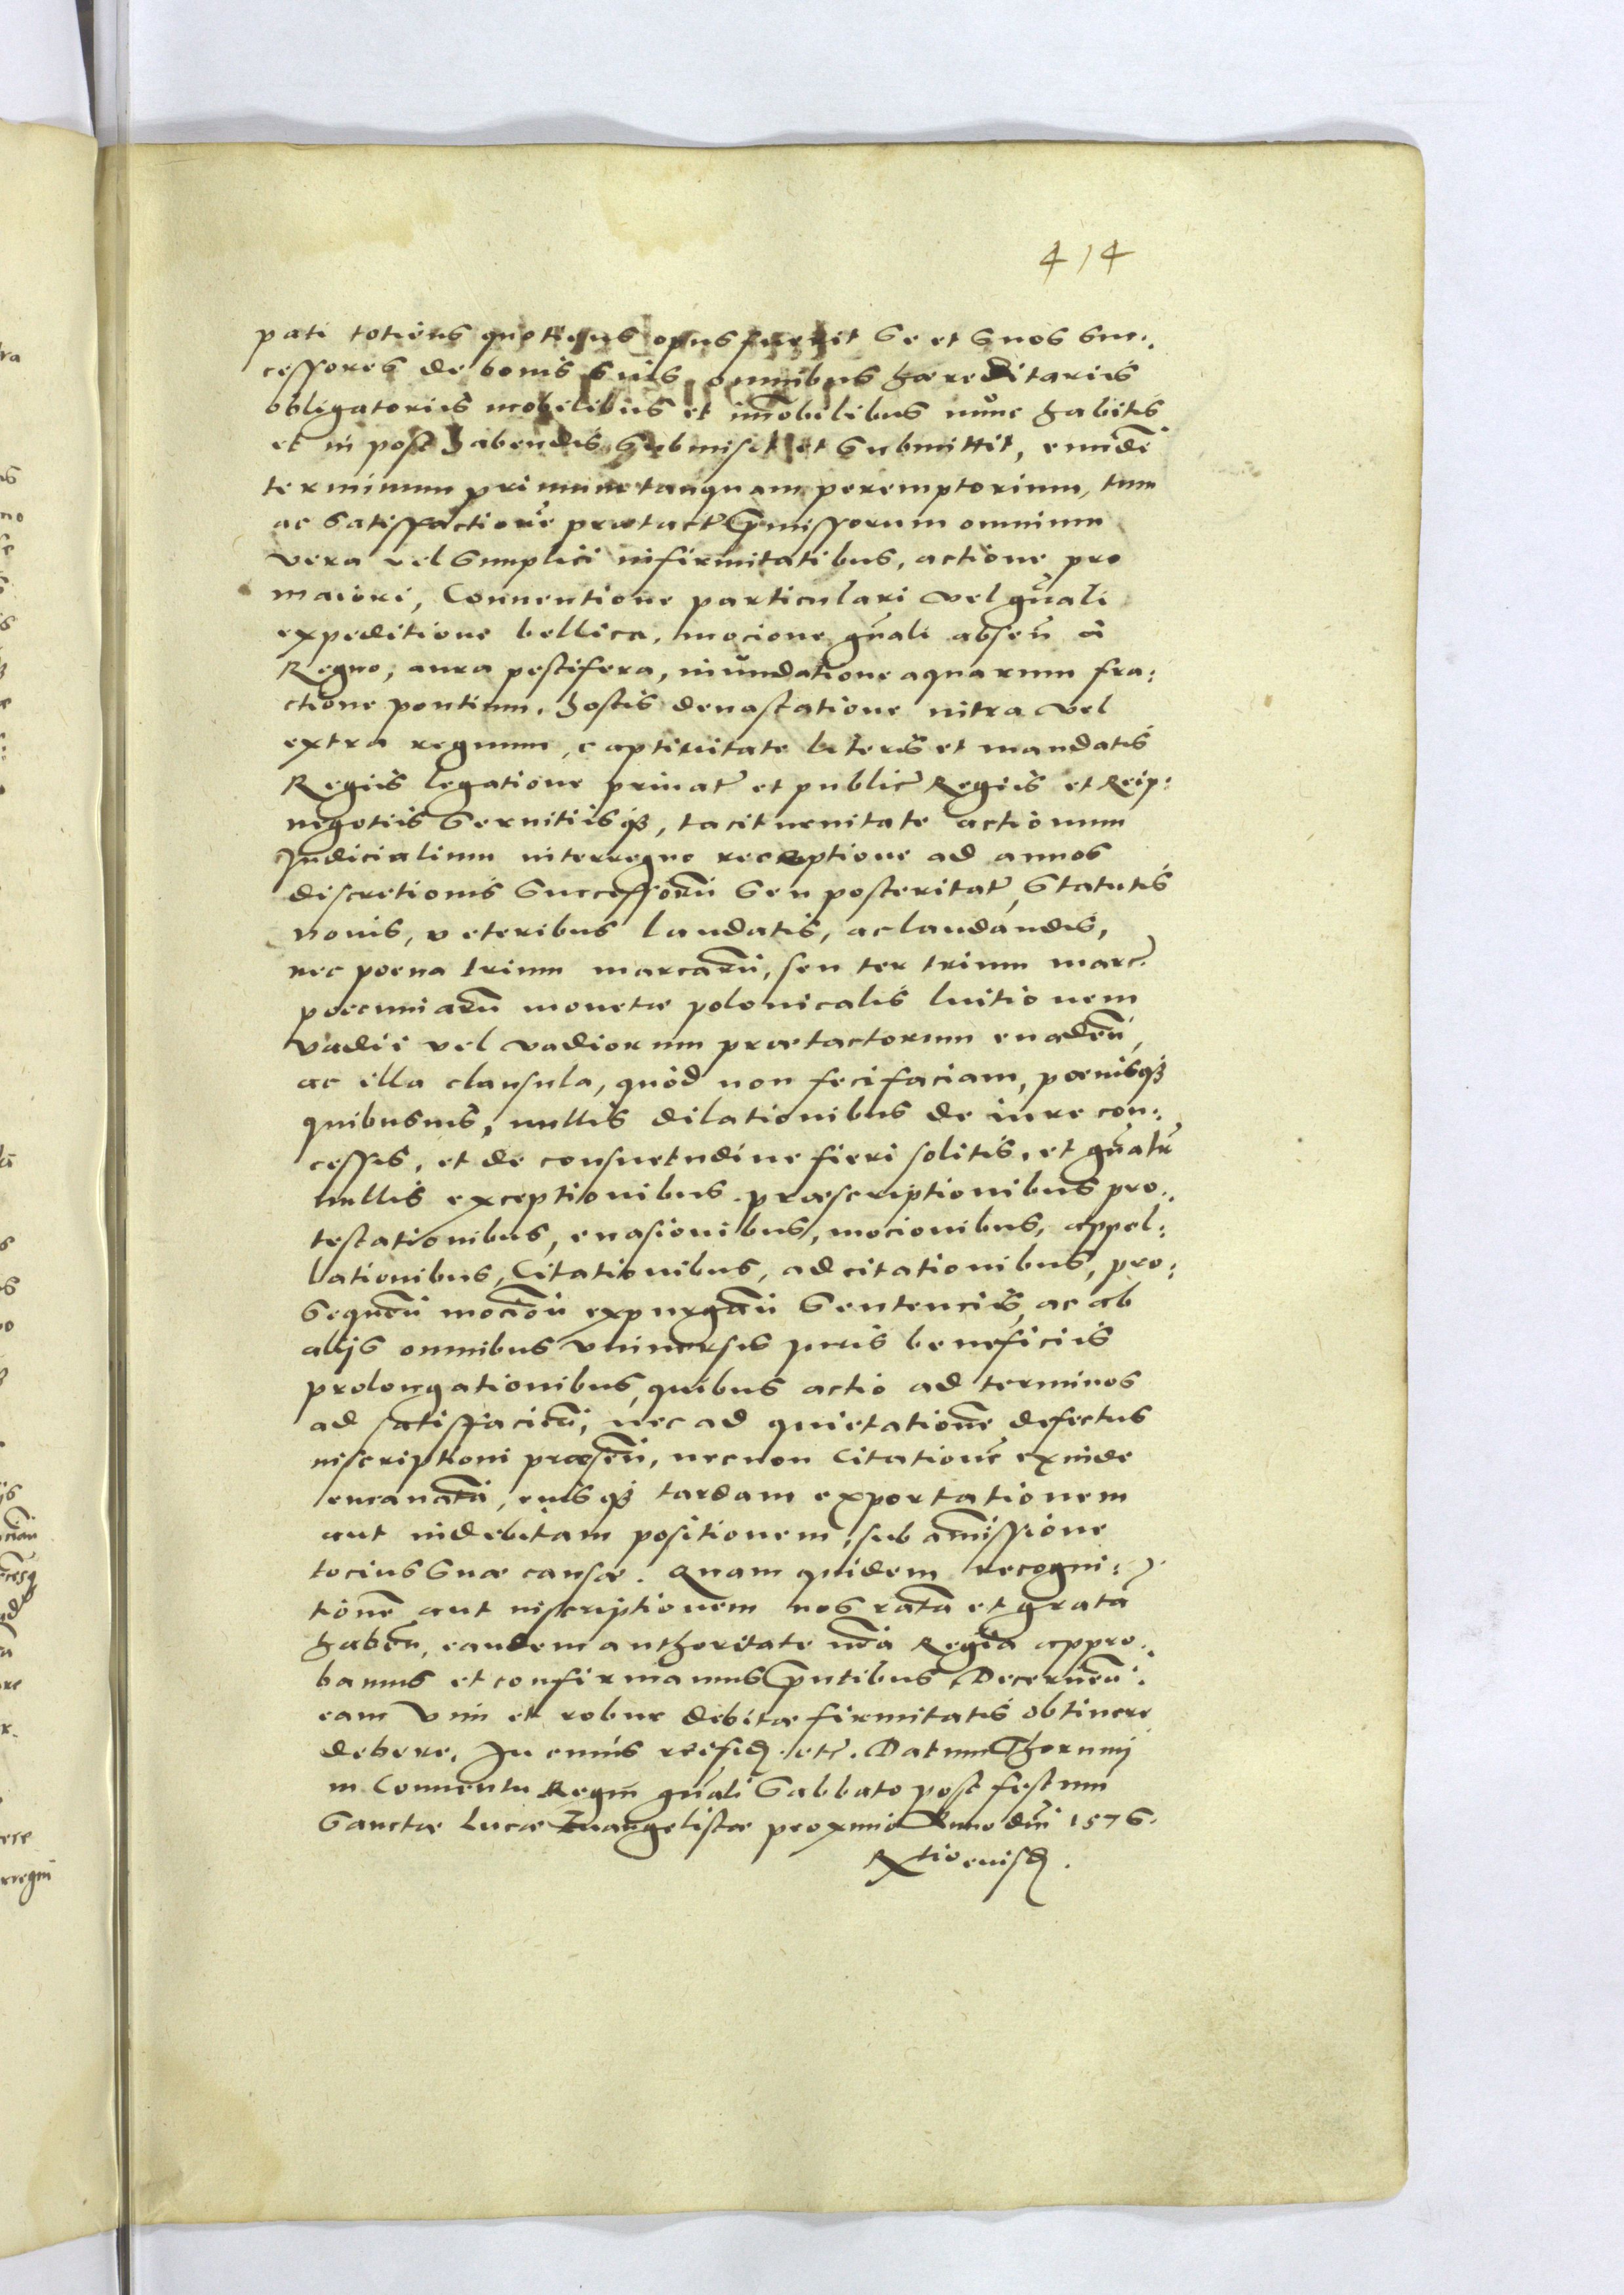 414
pati totiens quotiens opus fuerit Se et Suos Suc:
cessores de bonis suis omnibus hæreditariis
obligatoriis mobilibus et im̃obilibus nunc habitis
et in post habendis Submisit et Submittit, eundẽ
terminum primum tanquam peremptorium, tum
ac Satisfactionẽ prætactẽ p̃missorum omnium
vera vel Simplici infirmitatibus, actione pro
maiori, Conventione particulari vel gñali
expeditione bellica, mocione gñali abseñ à
Regno, aura pestifera, inundatione aquarum fra:
ctione pontium, hostis devastatione intra vel
extra regnum, captivitate literis et mandatis
Regiis legatione privatẽ et publicẽ Regiis et Reip:
negotiis Servitiisqꝫ, taciturnitate actionum
Judicialium interregno receptione ad annos
discretionis Successorũ Seu posteritatẽ, Statutis
novis, veteribus laudatis, ac laudandis,
nec poena trium marcarũ, seu ter trium marc̃
poecuniarũ monetæ polonicalis luitionem
vadii vel vadiorum prætactorum evadeñ,
ac illa clausula, quòd non feci faciam, pœnisqꝫ
quibusvis, nullis dilationibus de iure con:
cessis, et de consuetudine fieri solitis, et gñatr̃
nullis exceptionibus præscriptionibus pro:
testationibus, evasionibus, mocionibus, appel:
lationibus, Citationibus, adcitationibus, pro:
sequeñ mocioñ expurgañ Sentenciis, ac ab
alijs omnibus universis juris beneficiis
prolongationibus, quibus actio ad terminos
ad satisfacieñ, nec ad quietationẽ defectus
inscriptioni præseñ, necnon Citationẽ exinde
emanatã, eiusqꝫ tardam exportationem
aut indebitam positionem, sub amissione
tocius Suæ causæ. Quam quidem recogni:
tionẽ aut inscriptionem nos ratã et gratã
habeñ, eandem authoritate nr̃a Regia appro:
bamus et confirmamus p̃ntibus, Decerneñ
eam vim et robur debitæ firmitatis obtinere
debere. In cuius rei fidẽ. etc̃. Datum Thorunij
in Conventu Regni gñali Sabbato post festum
Sanctæ Lucæ Evangelistæ proximo Anno dñi 1576.
Rxtio eiusdẽ.